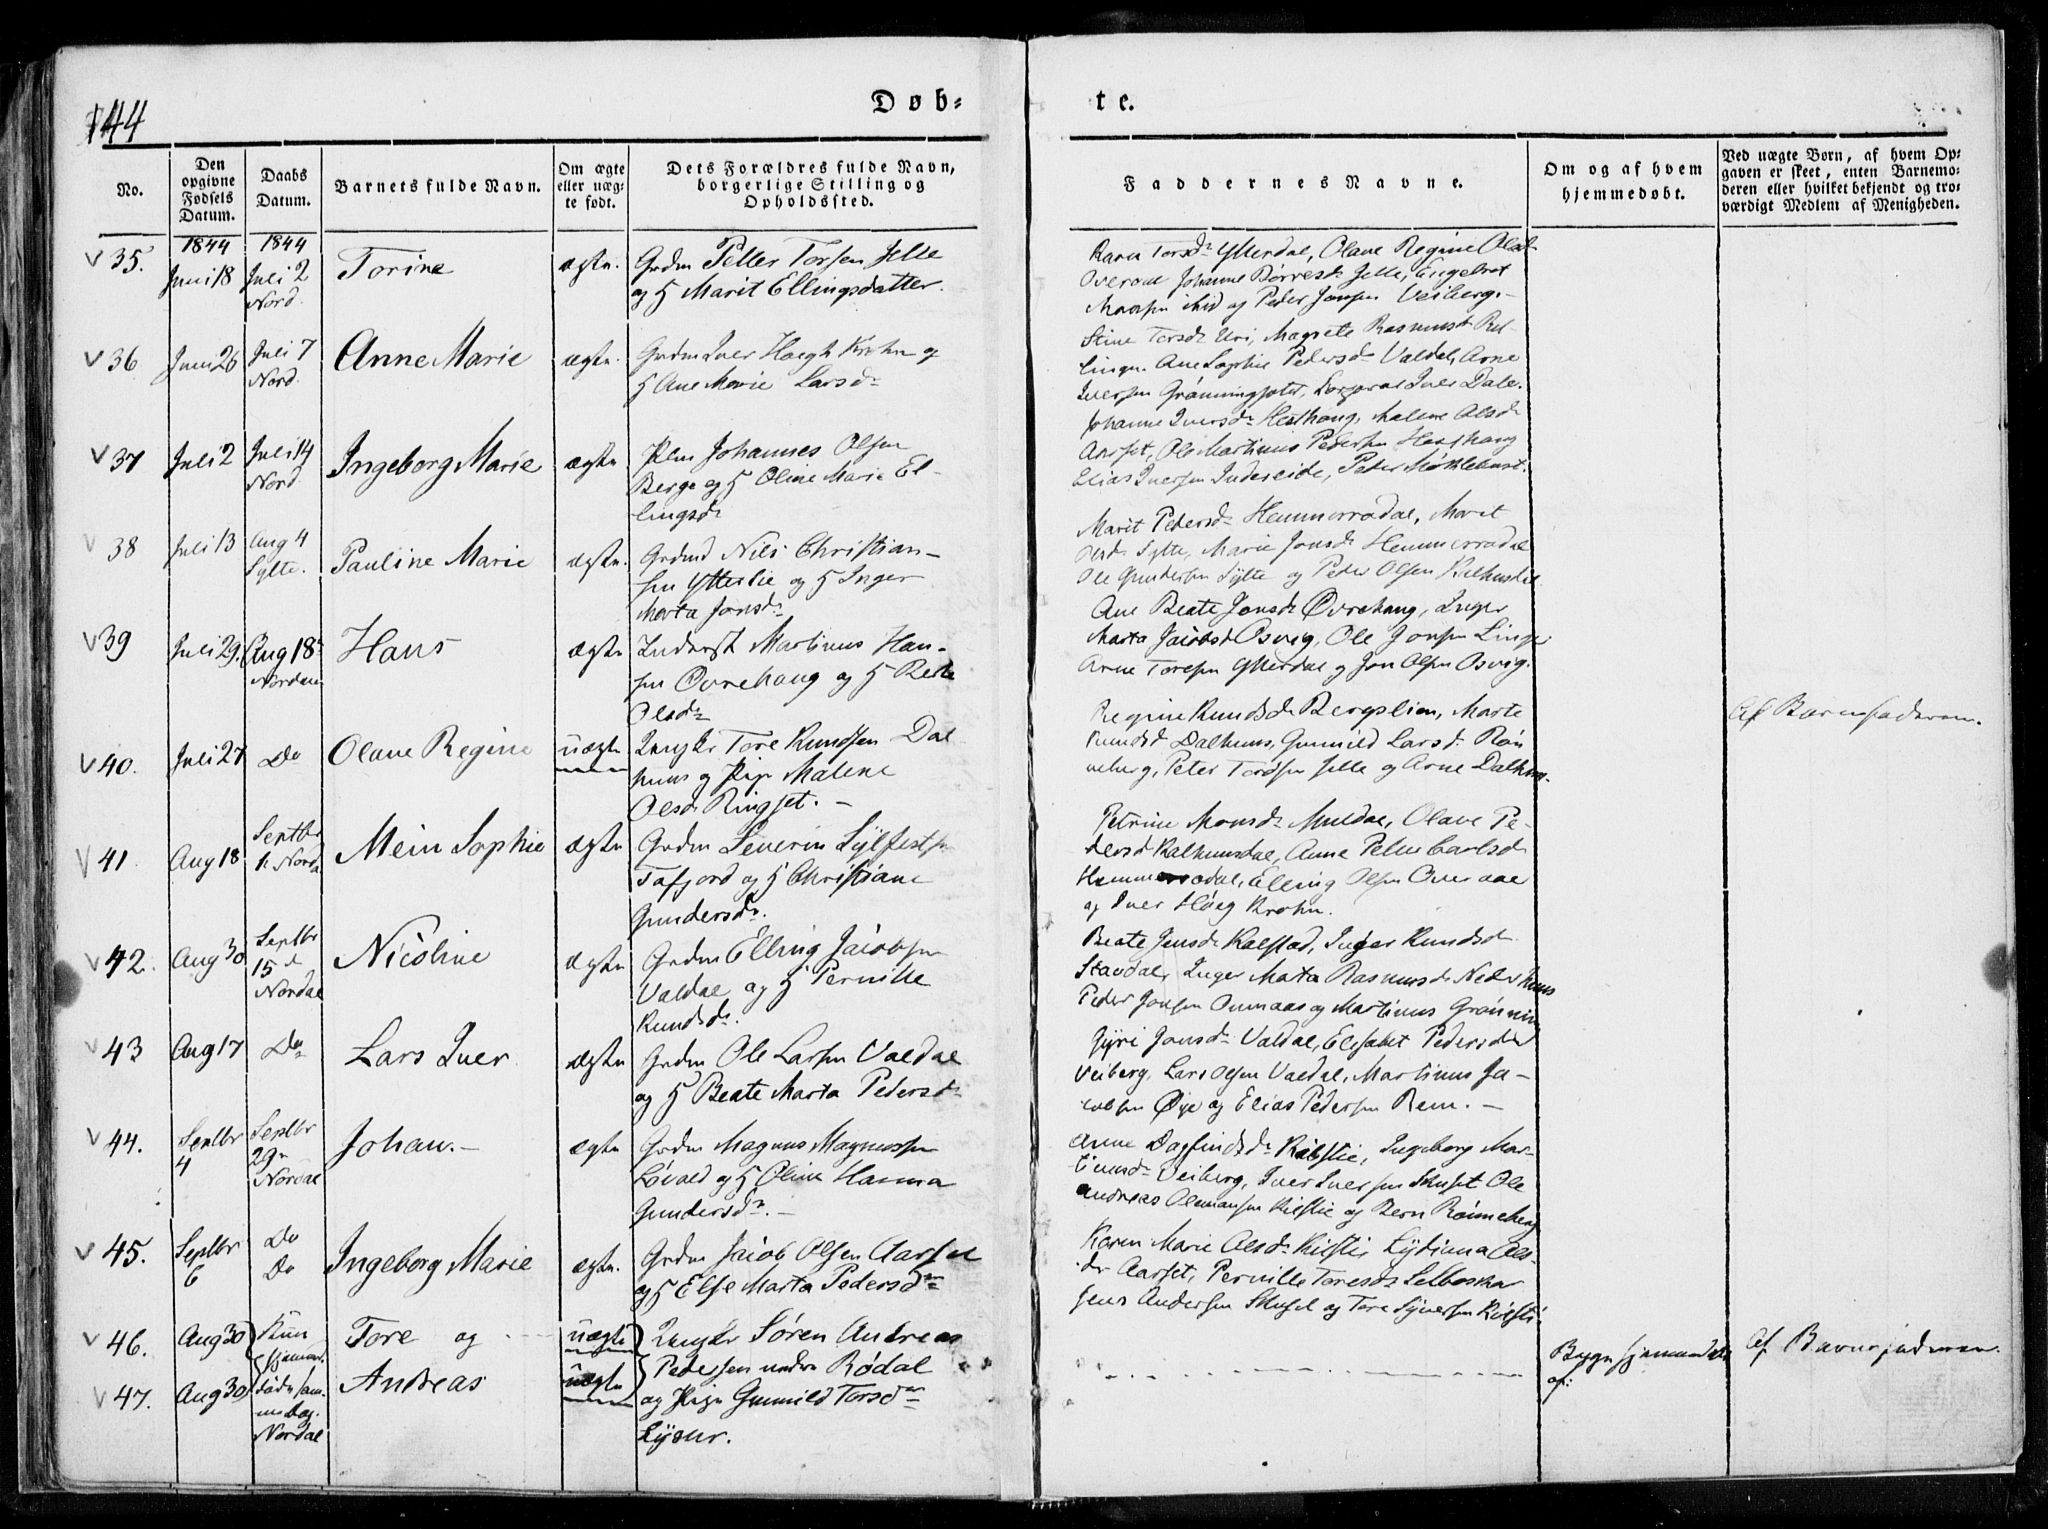 144
Døb-
te.
No.
Den opgivne Fødsels Datum.
Daabs Datum.
Barnets fulde Navn.
Om ægte eller uæg-te født.
Dets Forældres fulde Navn, borgerlige Stilling og Opholdssted.
Faddernes Navne.
Om og af hvem hjemmedøbt.
Ved uægte Børn, af hvem Op-gaven er skeet, enten Barnemo-deren eller hvilket bekjendt og tro-værdigt Medlem af Menigheden.
1844 1844
35. Juni 18 Juli 2 Nord. Torine ægte.
Grdm Petter Torsen Jelle
og H Marit Ellingsdatter.
Karn Torsd Ytterdal, Olave Regine Olsd
Overaae Johanne Børresd Jelle, Engebret
og Peder Jonsen Veiberg.
36 Juni 26 Juli 7 Nord. Anne Marie ægte.
Grdm Iver Høegh Krohn og
H Ane Marie Larsd
Stine Torsd Uri, Magrete Rasmusd Rel-
linge. Ane Sophie Pedersd Valdal, Arne
Iversen Grønningsæter, Iver Dale.
37 Juli 2 Juli 14 Nord Ingeborg Marie ægte
Johannes Olsen
Berge og H Oline Marie El-
lingsd
Johanne Iversd Hesthaug, Malene Olsd
Aarset, Ole Martinus Pedersen Hesthaug
Elias Iversen Indreeide, Peter Møklebust.
38 Juli 13 Aug 4 Sylte. Pauline Marie ægte.
Grdmd Nils Christian-
sen Ytterlie og H Inger
Marta Jonsd
Marit Pedersd Hemmerradal, Marit
Olsd Sylte, Marie Jonsd Hemmerradal
Ole Gundersen Sylte og Peter Olsen
39 Juli 29. Aug 18 Nordal Hans ægte
Inderst Martinus Han-
sen Øvrehaug og H Beate
Olsd
Ane Beate Jonsd Øvrehaug, Inger
Marta Jacobsd Osvig, Ole Jonsen Linge
Arne Toresen Ytterdal og Jon Olsen Osvig.
40. Juli 27 Do Olave Regine uægte
Ungkr Tore Knudsen Dal-
huus og Pige Malene
Olsd Ringset. -
Regine Knudsd Bergslien, Marte
Knudsd Dalhuus, Gunnild Larsd Røn
neberg, Peter Tordsen Jelle og Arne Dalhuus.
Af Barnefaderen.
41. Aug 18 Septbr 1. Nord Mein Sophie ægte
Grdm Severin Sylfestsen
Tafjord og H Christiane
Gundersd.
Petrine Monsd Muldal, Olave Pe-
dersd Kalhusdal, Anne Petrine Carlsd
Hemmerradal, Elling Olsen Overaae
og Iver Høeg Krohn.
42. Aug 30 Septbr 15 Nordal Nicoline ægte
Grdm Elling Jacobsen
Valdal og H Pernille
Knudsd.
Beate Jensd Kalstad, Inger Knudsd
Stavdal, Inger Marta Rasmusd Nedrehuus
Peder Jonsen og Martinus Grønning
43 Aug 17 Do Lars Iver ægte
Grdm Ole Larsen Valdal
og H Beate Marta Pedersd
Gyri Jonsd Valdal, Elisabet Pedersd
Veiberg, Lars Olsen Valdal, Martinus Ja-
cobsen Øye og Elias Pedersen Rem. -
44. Septbr 4 Septbr 29 Nordal Johan. - ægte
Grdm Magnus Magnussen
Løvald og H Oline Hanna
Gundersd. -
Anne Dagfindsd Kilstie, Ingeborg Mar-
tinusd Veiberg, Iver Iversen Skuset Ole
Andreas Olemansen Kilstie og Bern Rønneberg
45. Septbr 6 Do Do Ingeborg Marie ægte.
Grdm Jacob Olsen Aarset
og H Else Marta Pedersd
Karen Marie Olsd Kilstie Lydiana Ols-
dr Aarset, Pernille Toresd Selboskar
Jens Andersen Skuset og Tore Synersen Kilsti
46. Aug 30 Tore og uægte
47. Aug 30 Andreas uægte
Kun hjemmedøbte samme Dag. Nordal
Ungkr Søren Andreas
Pedersen nedre Rødal
og Pige Gunnild Torsd
Lysur.
Af Barnefaderen.